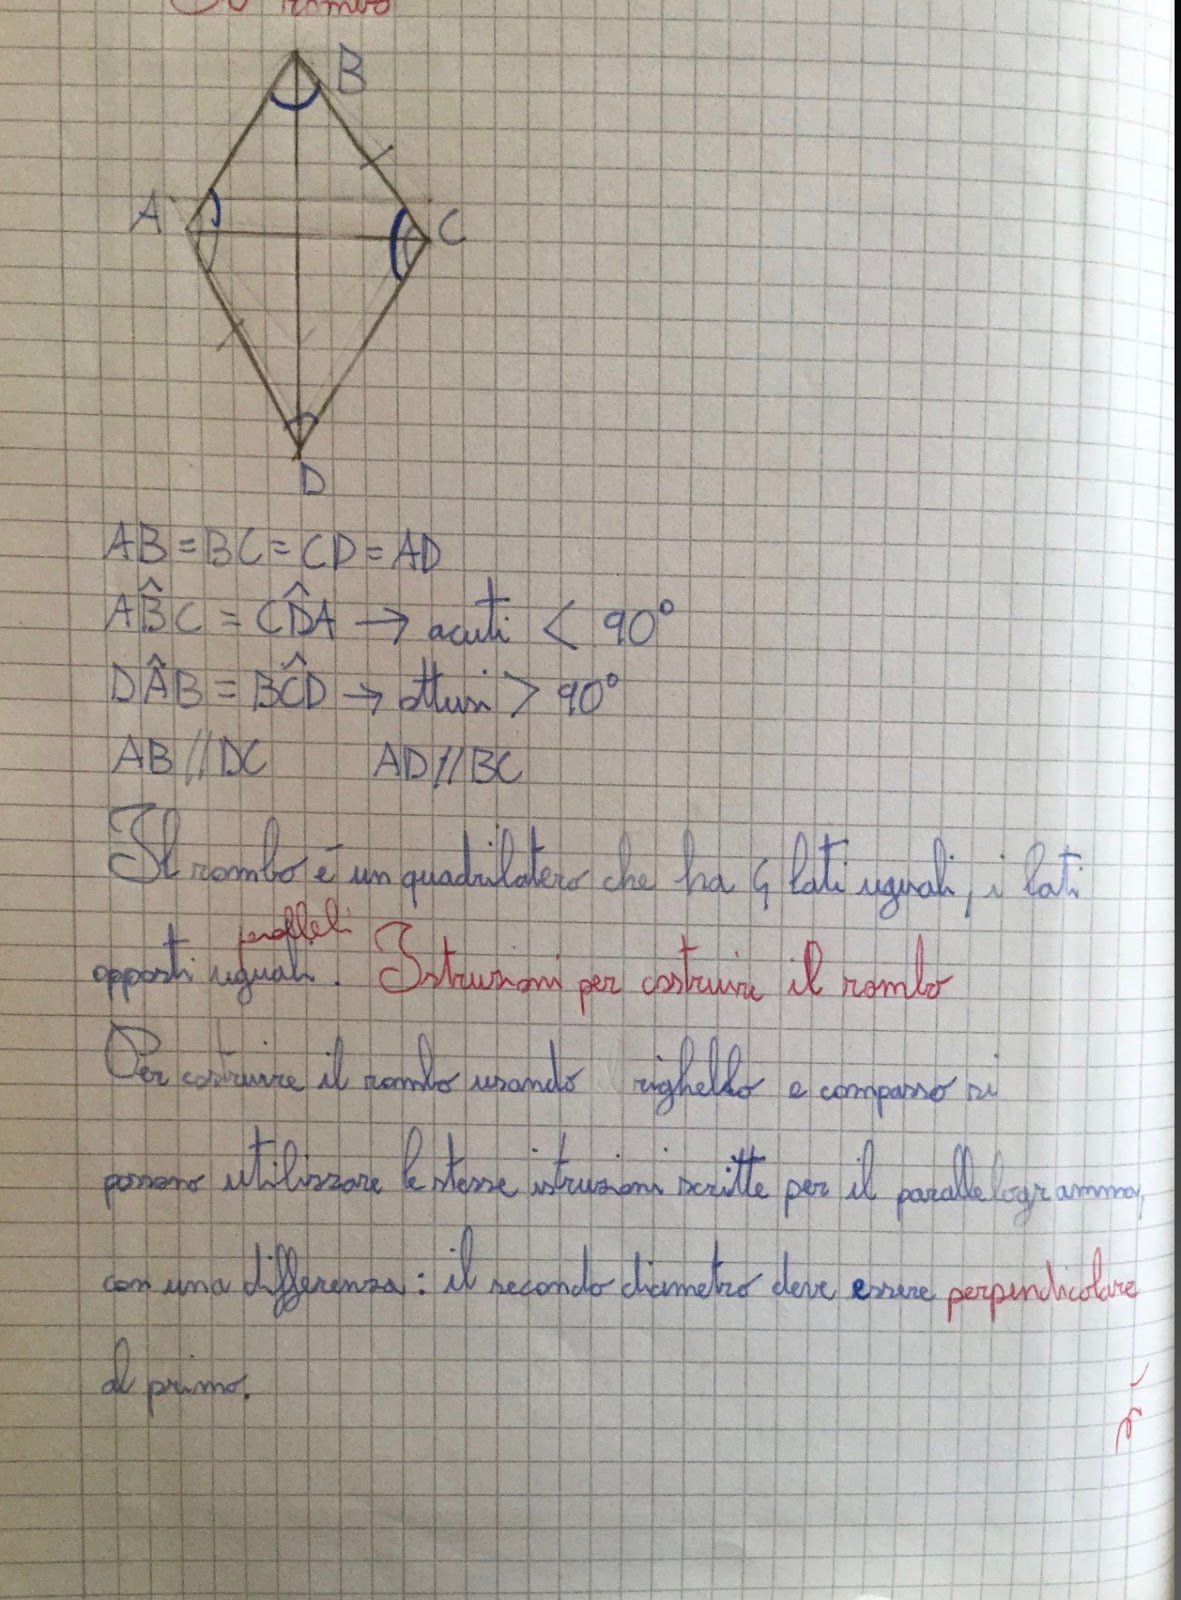 rombo
B
A
C
D
AB = BC = CD = AD
AB̂C = CD̂A → acuti < 90°
DÂB = BĈD → ottusi > 90°
AB // DC AD // BC
Il rombo è un quadrilatero che ha 4 lati uguali, i lati
paralleli
opposti uguali. Istruzioni per costruire il rombo
Per costruire il rombo usando righello e compasso si
possono utilizzare le stesse istruzioni scritte per il parallelogramma,
con una differenza: il secondo diametro deve essere perpendicolare
al primo.